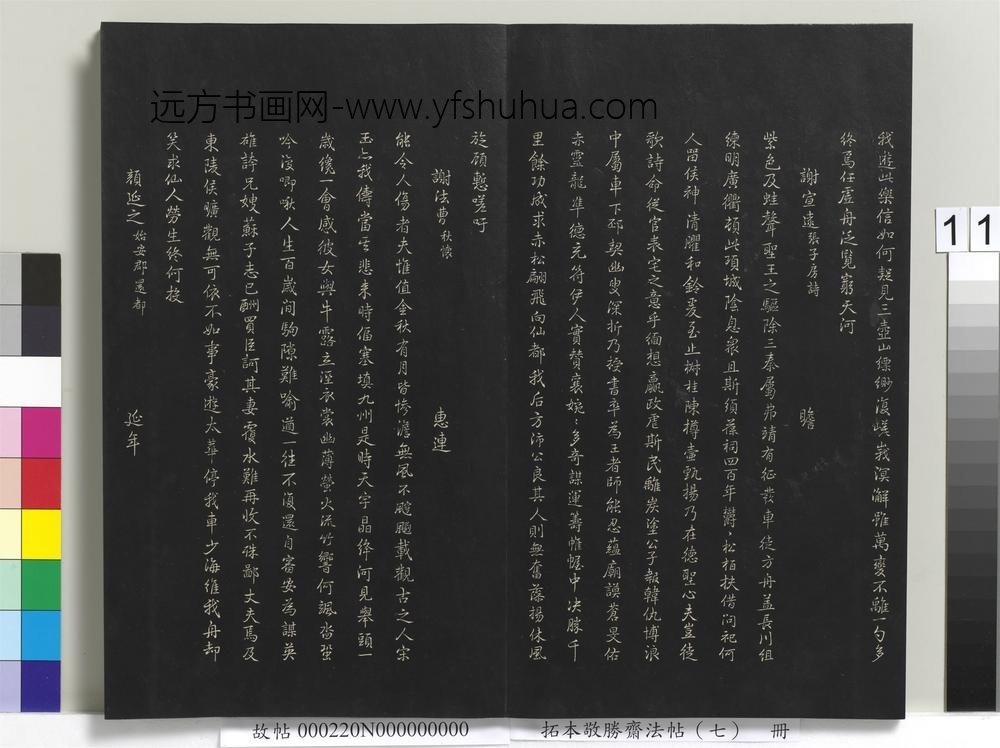 我遊此樂信如何疑見三壺山縹緲復嵯峩溟澥雖萬變不離一勺多
終焉任虛舟泛覽窮天河
謝宣遠 張子房詩 瞻
紫色及蛙聲聖王之驅除三秦屬弗靖有征發車徒方舟蓋長川組
練明廣衢頓此項城陰息衆且斯須葆祠四百年欝〻松柏扶借問祀何
人留侯神清曜和鈴爰至止樹桂陳樽壺甄揚乃在德聖心夫豈徒
歌詩命從官表宅之意乎緬想嬴政虐斯民離炭塗公子報韓仇博浪
中屬車下邳契幽叟深折乃授書卒為王者師能忍蘊廟謨蒼旻佑
赤靈龍準德充符伊人實贊襄婉〻多奇謀運籌帷幄中决勝千
里餘功成求赤松翩飛向仙都我后方沛公良其人則無奮藻揚休風
旋顧慙嗟吁
謝法曹 秋懷 惠連
能令人傷者夫惟值金秋有月皆慘澹無風不颼飈載觀古之人宋
玉忘我儔當其悲来時偪塞填九州是時天宇晶絳河見舉頭一
歲儳一會感彼女與牛露立溼衣裳幽薄螢火流竹響何颯沓蛩
吟復唧啾人生百歲间駒隙難喻遒一往不復還自審安為謀英
雄誇兄嫂蘇子志已酬買臣訶其妻覆水難再收不殊鄙丈夫焉及
東陵侯曠觀無可依不如事豪遊太華停我車少海維我舟却
笑求仙人勞生終何投
顏延之 始安郡還都 延年
远方书画网-www.yfshuhua.com
11
故帖 000220N000000000
拓本敬勝齋法帖（七） 冊